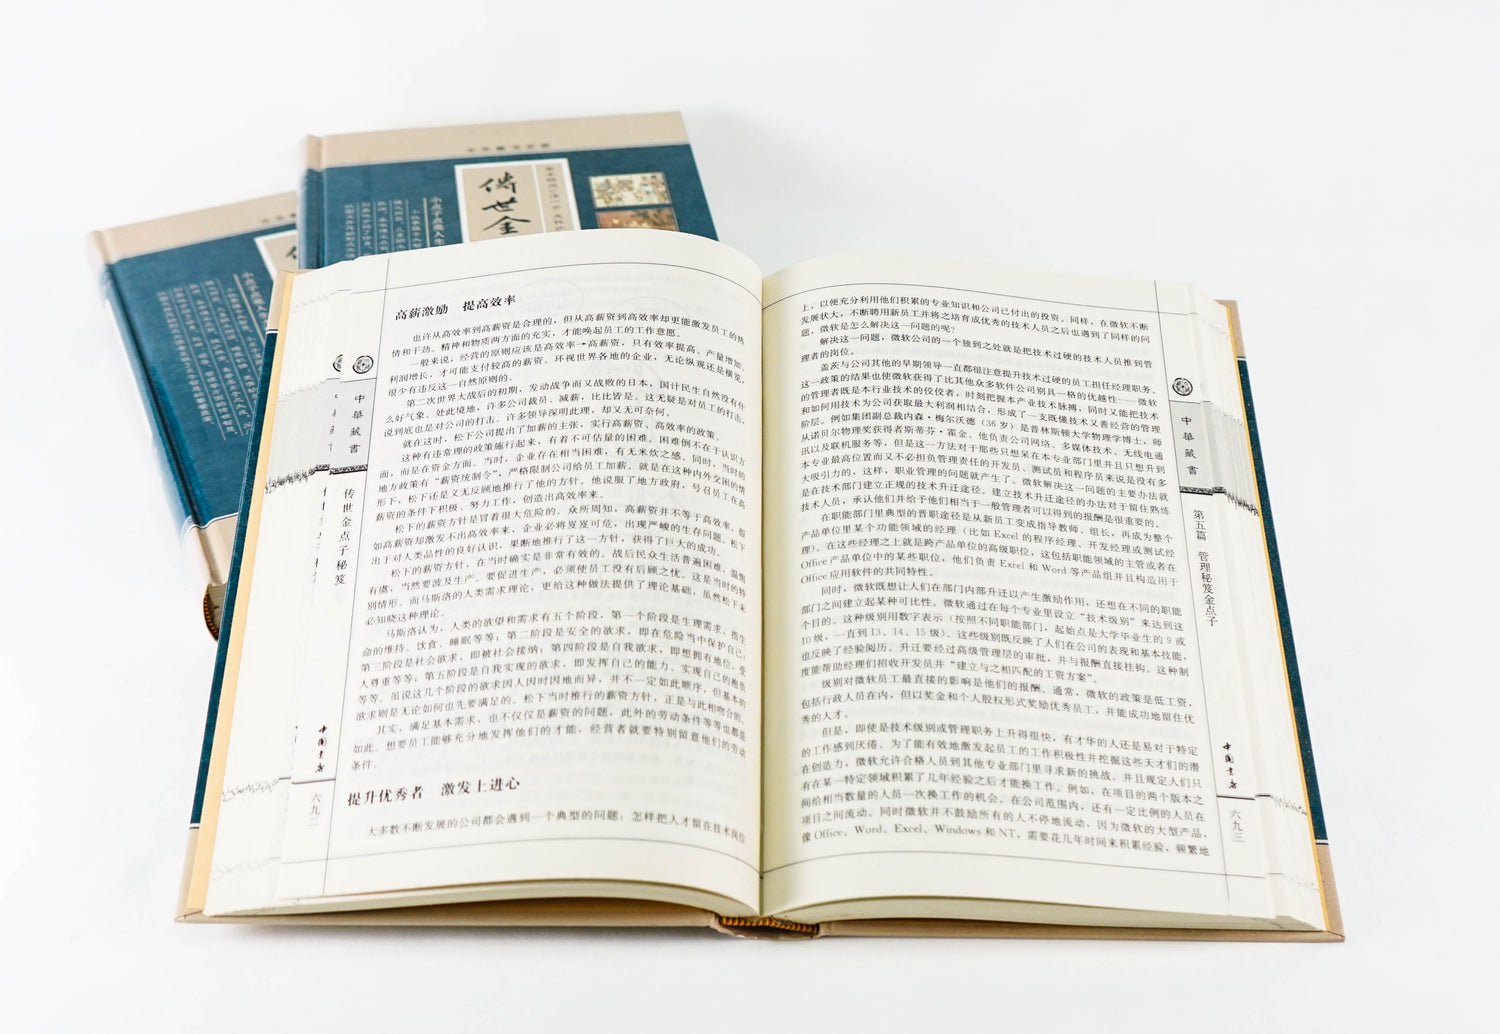 傳世金
傳世金点子秘笈
中華藏書
中国书店
六九二
高薪激励　提高效率
也许从高效率到高薪资是合理的，但从高薪资到高效率却更能激发员工的热
情和干劲。精神和物质两方面的充实，才能唤起员工的工作意愿。
一般来说，经营的原则应该是高效率→高薪资，只有效率提高、产量增加、
利润增长，才可能支付较高的薪资。环视世界各地的企业，无论纵观还是横览，
很少有违反这一自然原则的。
第二次世界大战后的初期，发动战争而又战败的日本，国计民生自然没有什
么好气象。处此境地，许多公司裁员、减薪，比比皆是。这无疑是对员工的打击，
说到底也是对公司的打击。许多领导深明此理，却又无可奈何。
就在这时，松下公司提出了加薪的主张，实行高薪资、高效率的政策。
这种有违常理的政策施行起来，有着不可估量的困难。困难倒不在于认识方
面，而是在资金方面。当时，企业存在相当困难，有无米炊之感。同时，当时的
地方政策有“薪资统制令”，严格限制公司给员工加薪。就是在这种内外交困的情
形下，松下还是义无反顾地推行了他的方针。他说服了地方政府，号召员工在高
薪资的条件下积极、努力工作，创造出高效率来。
松下的薪资方针是冒着很大危险的。众所周知，高薪资并不等于高效率，假
如高薪资却激发不出高效率来，企业必将岌岌可危，出现严峻的生存问题。松下
出于对人类品性的良好认识，果断地推行了这一方针，获得了巨大的成功。
松下的薪资方针，在当时确实是非常有效的。战后民众生活普遍困难，温饱
有虞，当然要波及生产。要促进生产，必须使员工没有后顾之忧。这是当时的特
别情形。而马斯洛的人类需求理论，更给这种做法提供了理论基础，虽然松下未
必知晓这种理论。
马斯洛认为，人类的欲望和需求有五个阶段，第一个阶段是生理需求，指生
命的维持、饮食、睡眠等等；第二阶段是安全的欲求，即在危险当中保护自己；
第三阶段是社会欲求，即被社会接纳；第四阶段是自我欲求，即想拥有地位，受
人尊重等等；第五阶段是自我实现的欲求，即发挥自己的能力、实现自己的抱负
等等。虽说这几个阶段的欲求因人因时因地而异，并不一定如此顺序，但基本的
欲求则是无论如何也先要满足的。松下当时推行的薪资方针，正是与此相吻合的。
其实，满足基本需求，也不仅仅是薪资的问题，此外的劳动条件等等也都是
如此。想要员工能够充分地发挥他们的才能，经营者就要特别留意他们的劳动
条件。
提升优秀者　激发上进心
大多数不断发展的公司都会遇到一个典型的问题：怎样把人才留在技术岗位
上，以便充分利用他们积累的专业知识和公司已付出的投资。同样，在微软不断
发展状大，不断聘用新员工并将之培育成优秀的技术人员之后也遇到了同样的问
题，微软是怎么解决这一问题的呢？
解决这一问题，微软公司的一个独到之处就是把技术过硬的技术人员推到管
理者的岗位。
盖茨与公司其他的早期领导一直都很注意提升技术过硬的员工担任经理职务。
这一政策的结果也使微软获得了比其他众多软件公司别具一格的优越性——微软
的管理者既是本行业技术的佼佼者，时刻把握本产业技术脉搏，同时又能把技术
和如何用技术为公司获取最大利润相结合，形成了一支既懂技术又善经营的管理
阶层。例如集团副总裁内森·梅尔沃德（36 岁）是普林斯顿大学物理学博士，师
从诺贝尔物理奖获得者斯蒂芬·霍金。他负责公司网络、多媒体技术、无线电通
讯以及联机服务等，但是这一方法对于那些只想呆在本专业部门里并且只想升到
本专业最高位置而又不必担负管理责任的开发员、测试员和程序员来说是没有多
大吸引力的，这样，职业管理的问题就产生了。微软解决这一问题的主要办法就
是在技术部门建立正规的技术升迁途径。建立技术升迁途径的办法对于留住熟练
技术人员，承认他们并给予他们相当于一般管理者可以得到的报酬是很重要的。
在职能部门里典型的晋职途径是从新员工变成指导教师、组长，再成为整个
产品单位里某个功能领域的经理（比如 Excel 的程序经理、开发经理或测试经
理）。在这些经理之上就是跨产品单位的高级职位，这包括职能领域的主管或者在
Office 产品单位中的某些职位，他们负责 Excel 和 Word 等产品组并且构造用于
Office 应用软件的共同特性。
同时，微软既想让人们在部门内部升迁以产生激励作用，还想在不同的职能
部门之间建立起某种可比性。微软通过在每个专业里设立“技术级别”来达到这
个目的。这种级别用数字表示（按照不同职能部门，起始点是大学毕业生的 9 或
10 级，一直到 13、14、15 级）。这些级别既反映了人们在公司的表现和基本技能，
也反映了经验阅历。升迁要经过高级管理层的审批，并与报酬直接挂钩。这种制
度能帮助经理们招收开发员并“建立与之相匹配的工资方案”。
级别对微软员工最直接的影响是他们的报酬。通常，微软的政策是低工资，
包括行政人员在内，但以奖金和个人股权形式奖励优秀员工，并能成功地留住优
秀的人才。
但是，即使是技术级别或管理职务上升得很快，有才华的人还是易对于特定
的工作感到厌倦。为了能有效地激发起员工的工作积极性并挖掘这些天才们的潜
在创造力，微软允许合格人员到其他专业部门里寻求新的挑战。并且规定人们只
有在某一特定领域积累了几年经验之后才能换工作。例如，在项目的两个版本之
间给相当数量的人员一次换工作的机会。在公司范围内，还有一定比例的人员在
项目之间流动。同时微软并不鼓励所有的人不停地流动，因为微软的大型产品，
像 Office、Word、Excel、Windows 和 NT，需要花几年时间来积累经验，频繁地
中華藏書
第五篇　管理秘笈金点子
中国书店
六九三